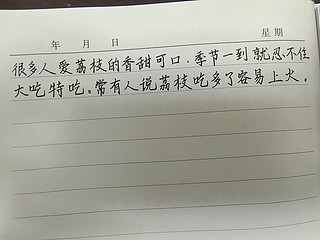 年 月 日 星期
很多人爱荔枝的香甜可口，季节一到就忍不住
大吃特吃。常有人说荔枝吃多了容易上火。